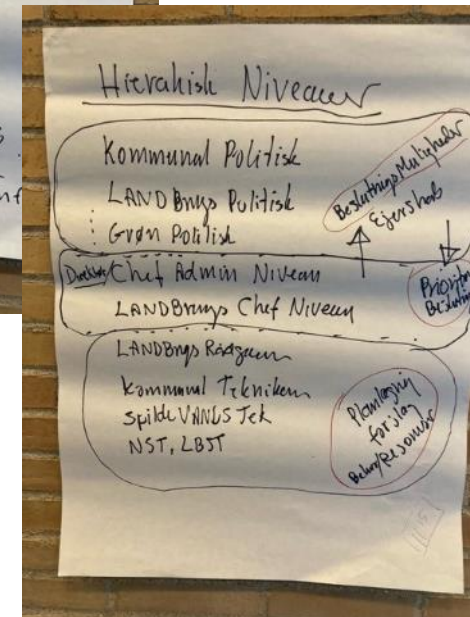 Hierakisk Niveauer
Kommunal Politisk
LANDBrugs Politisk
Grøn Politisk
Beslutnings Muligheder
Ejerskab
Direktør/Chef Admin Niveau
LANDBrugs Chef Niveau
LANDBrugs
Kommunal Teknikere
Spilde VANDS Tek
NST, LBST
Planlægning
forslag
Behov/Resourser